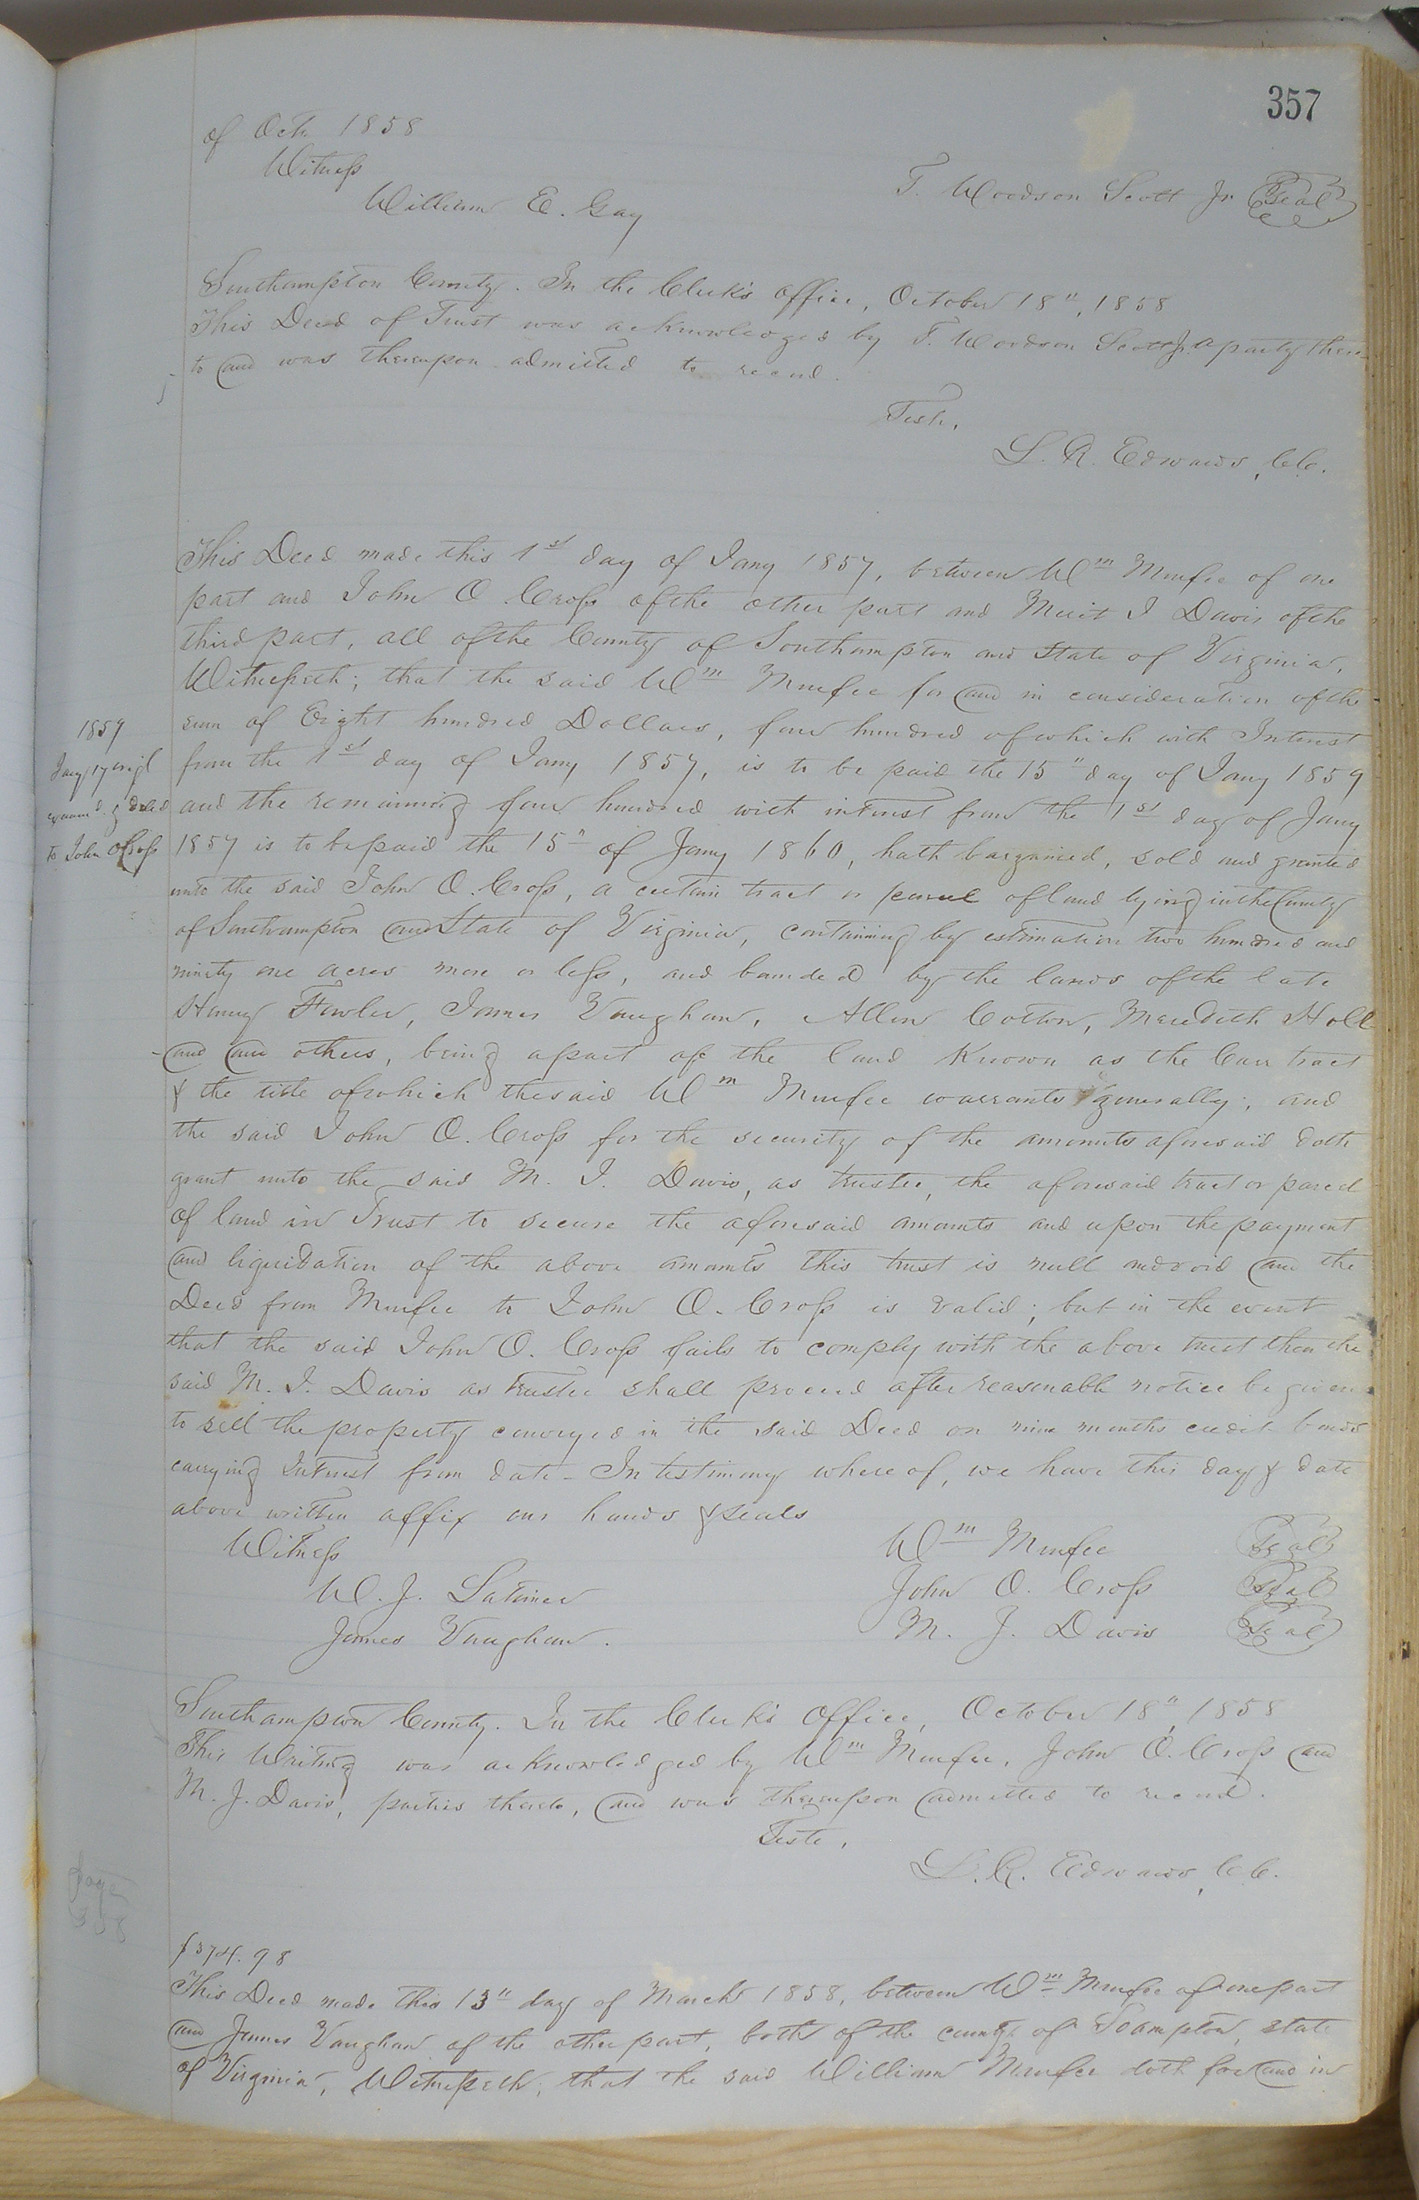 357
of Octr 1858
Witness
William E. Gay
T. Woodson Scott Jr Seal
Southampton County. In the Clerk's office, October 18", 1858
This Deed of Trust was acknowledged by T. Woodson Scott Jr a party there-
to and was thereupon admitted to record.
Teste,
L. R. Edwards, C.C.
This Deed made this 1st day of Jany 1857, between Wm Murfee of one
part and John O. Cross of the other part and Merit J Davis of the
third part, all of the County of Southampton and State of Virginia,
Witnesseth; that the said Wm Murfee for and in consideration of the
sum of Eight hundred Dollars, four hundred of which with Interest
from the 1st day of Jany 1857, is to be paid the 15" day of Jany 1859
and the remaining four hundred with interest from the 1st day of Jany
1857 is to be paid the 15" of Jany 1860, hath bargained, sold and granted
unto the said John O. Cross, a certain tract or parcel of land lying in the County
of Southampton and State of Virginia, containing by estimation two hundred and
ninety one acres more or less, and bounded by the lands of the late
Henry Fowler, James Vaughan, Allen Cotton, Meredith Holl
and and others, being a part of the land known as the Carr tract
& the title of which the said Wm Murfee warrants generally; and
the said John O. Cross for the security of the amounts aforesaid doth
grant unto the said M. J. Davis, as trustee, the aforesaid tract or parcel
of land in Trust to secure the aforesaid amounts and upon the payment
and liquidation of the above amounts this trust is null and void and the
Deed from Murfee to John O. Cross is valid; but in the event
that the said John O. Cross fails to comply with the above trust then the
said M. J. Davis as trustee shall proceed after reasonable notice be given
to sell the property conveyed in the said Deed on nine months credit bonds
carrying Interest from date - In testimony whereof, we have this day & date
above written affix our hands & seals
1859
Jany 17 origl
examd & deld
to John O Cross
Witness
W. J. Latimer
James Vaughan.
Wm Murfee Seal
John O. Cross Seal
M. J. Davis Seal
Southampton County. In the Clerk's Office, October 18", 1858
This Writing was acknowledged by Wm Murfee, John O. Cross and
M. J. Davis, parties thereto, and was thereupon admitted to record.
Teste,
L. R. Edwards, C.C.
page
358
$374.98
This Deed made this 13" day of March 1858, between Wm Murfee of one part
and James Vaughan of the other part, both of the county of Soampton, state
of Virginia, Witnesseth, that the said William Murfee doth for and in